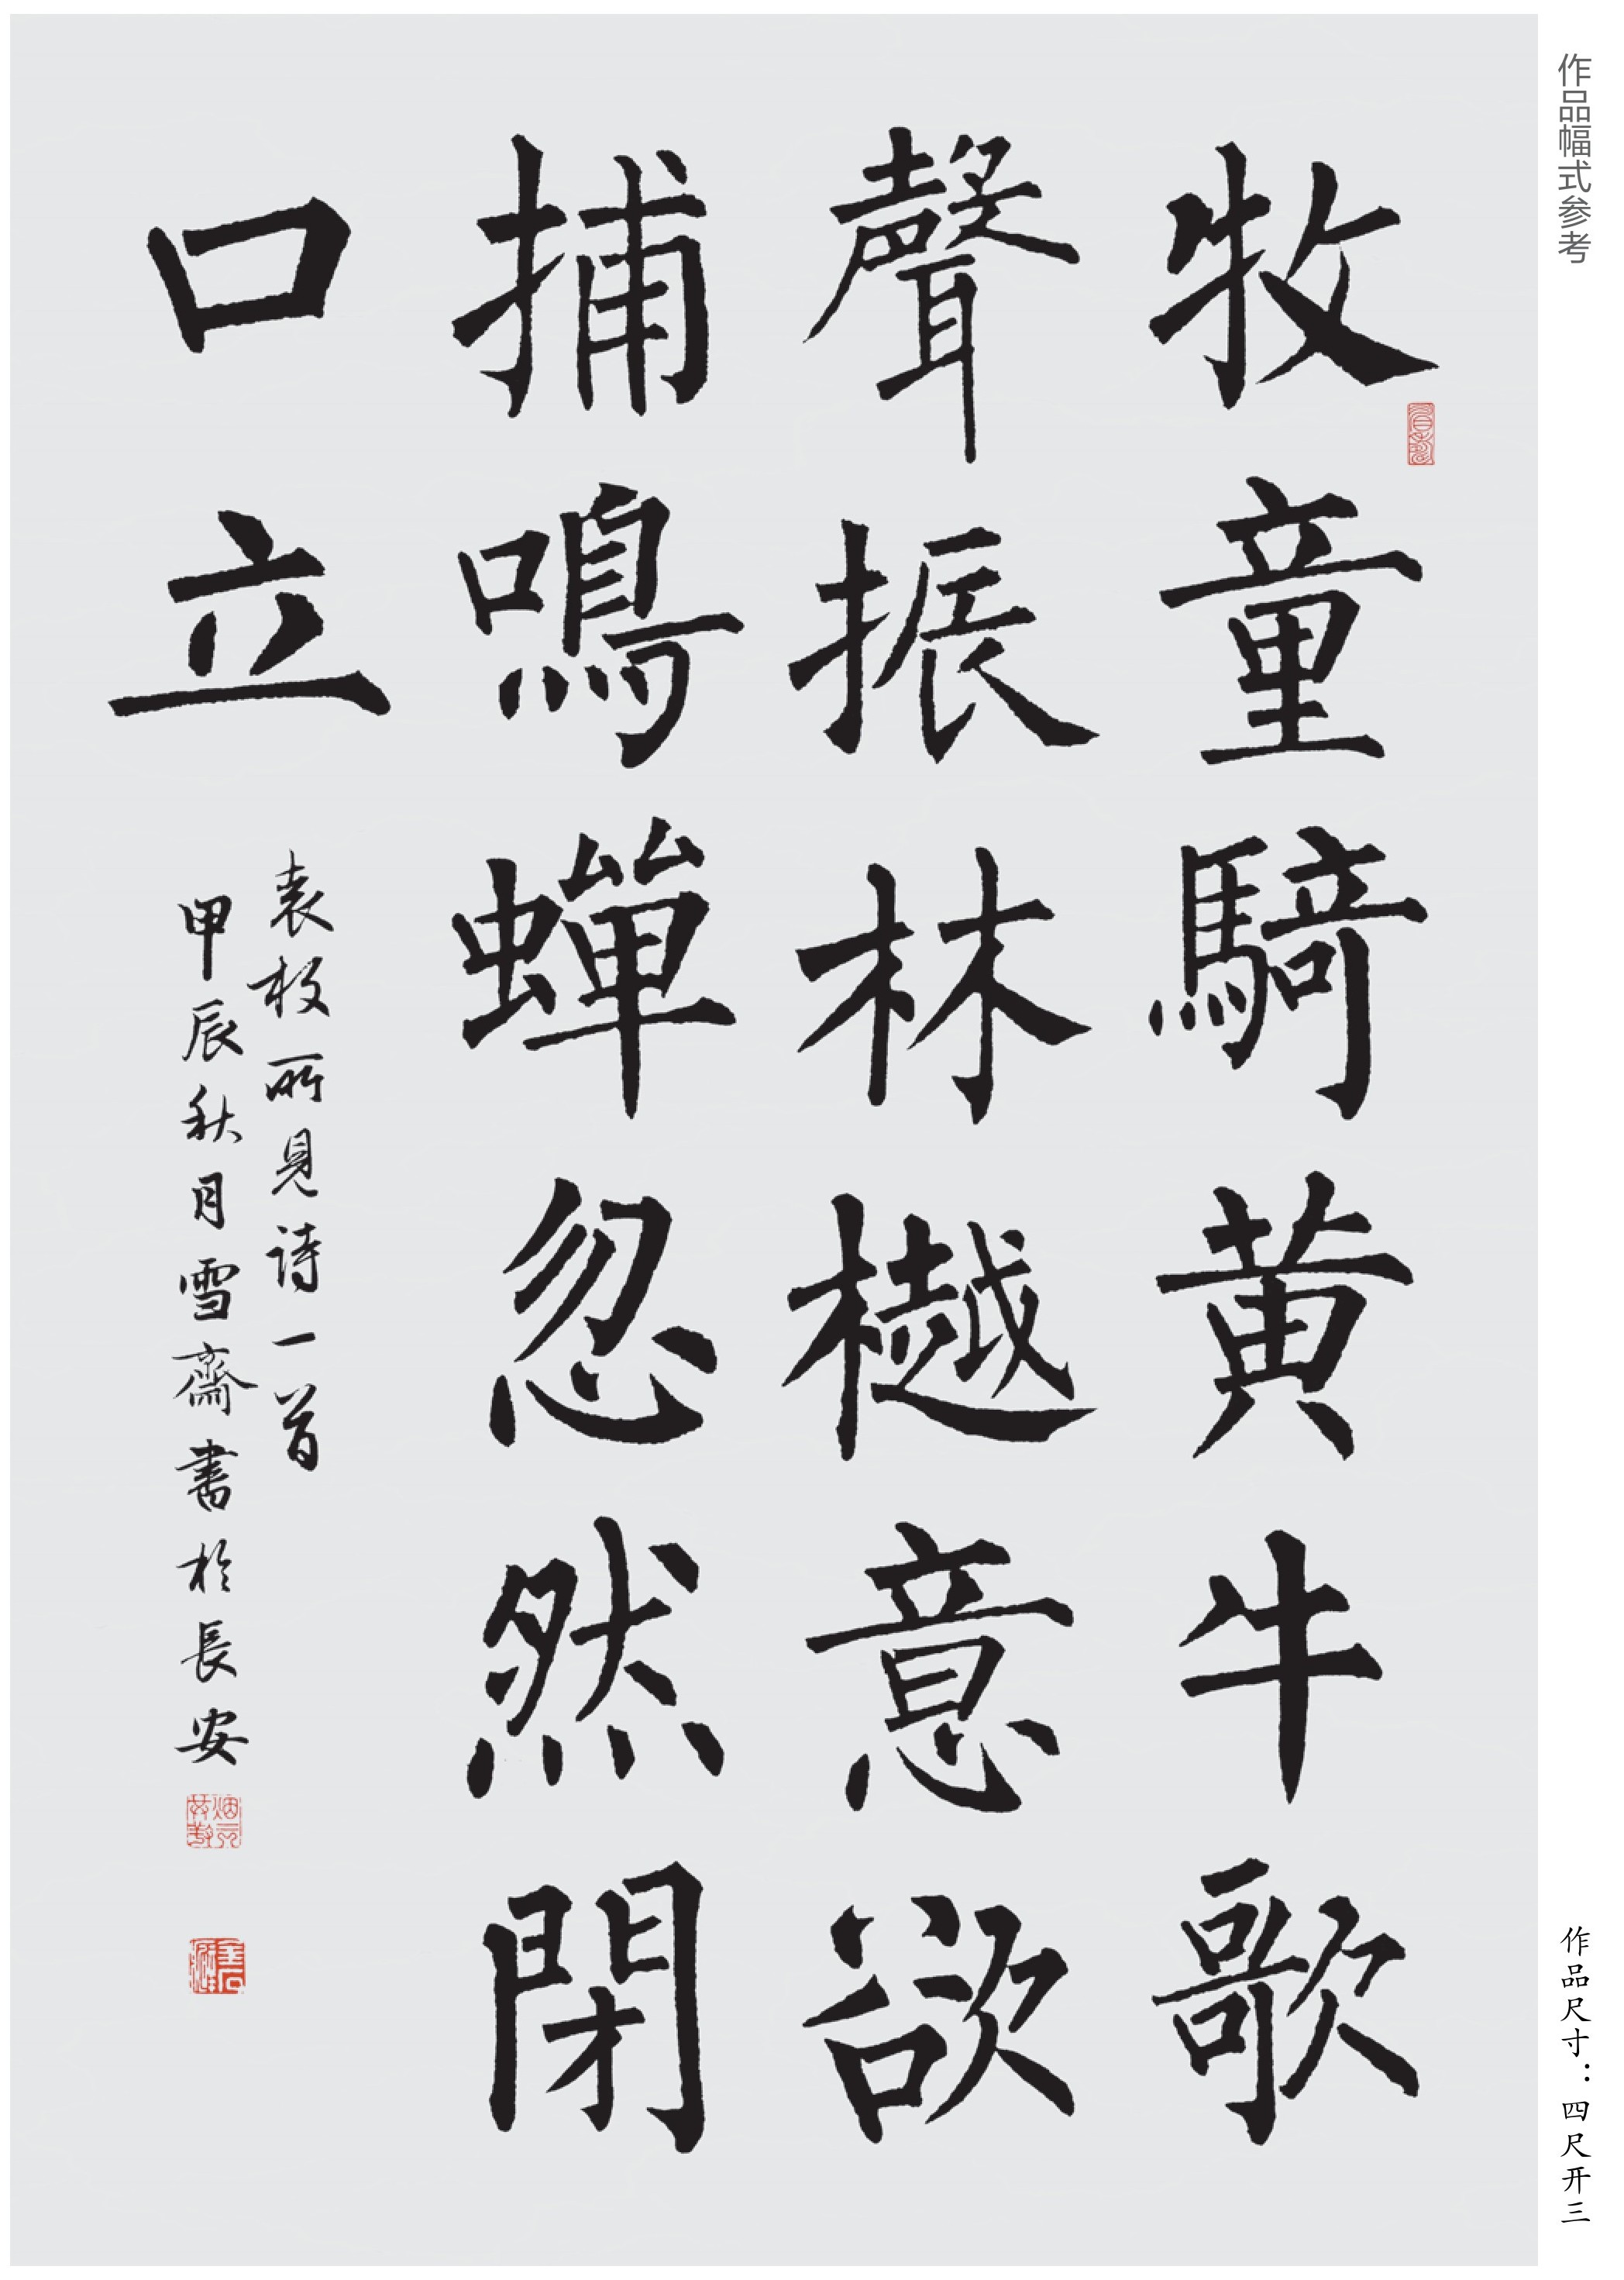 作品幅式参考
牧童騎黄牛歌
聲振林樾意欲
捕鳴蟬忽然閉
口立
袁枚所見诗一首
甲辰秋月雪齋書於長安
作品尺寸：四尺开三